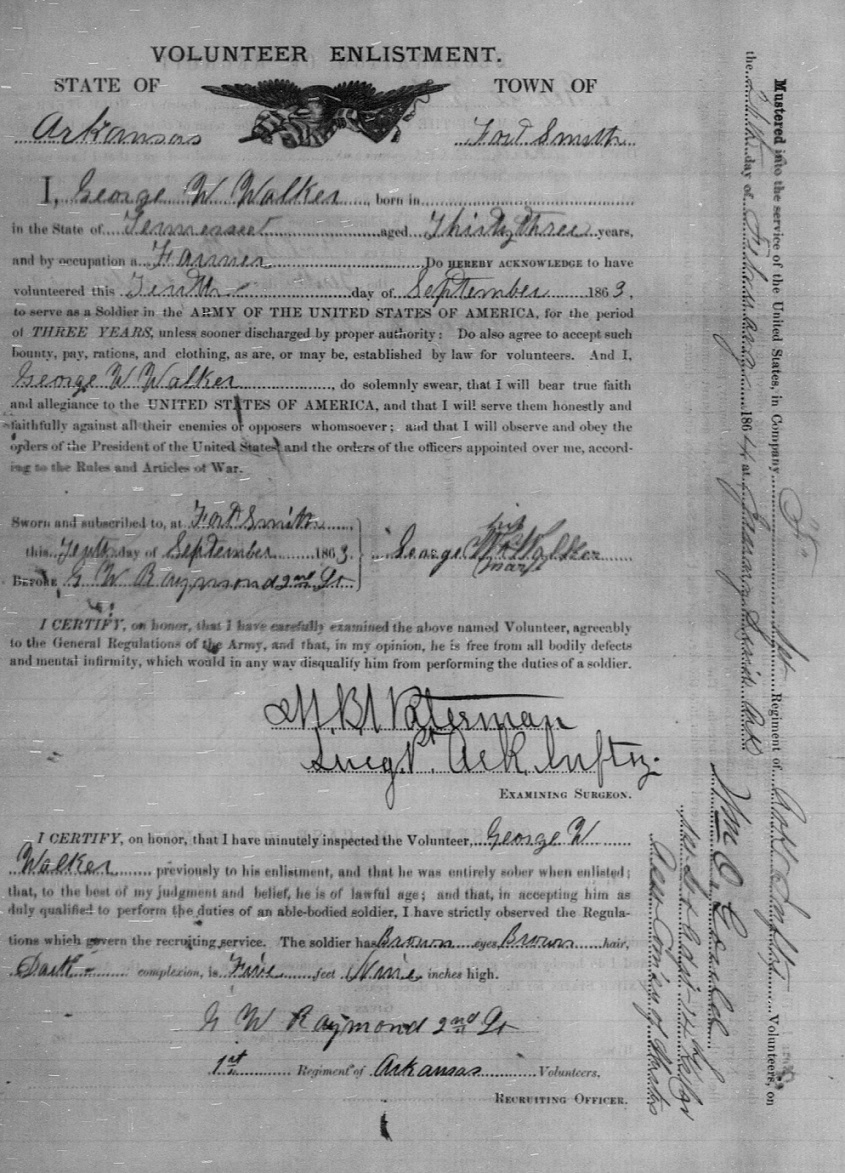 VOLUNTEER ENLISTMENT.
STATE OF TOWN OF
Arkansas Fort Smith
I, George W Walker born in
in the State of Tennessee aged Thirty three years,
and by occupation a Farmer Do HEREBY ACKNOWLEDGE to have
volunteered this Tenth day of September 1863,
to serve as a Soldier in the ARMY OF THE UNITED STATES OF AMERICA, for the period
of THREE YEARS, unless sooner discharged by proper authority: Do also agree to accept such
bounty, pay, rations, and clothing, as are, or may be, established by law for volunteers. And I,
George W Walker, do solemnly swear, that I will bear true faith
and allegiance to the UNITED STATES OF AMERICA, and that I will serve them honestly and
faithfully against all their enemies or opposers whomsoever; and that I will observe and obey the
orders of the President of the United States, and the orders of the officers appointed over me, accord-
ing to the Rules and Articles of War.
Sworn and subscribed to, at Fort Smith,
this Tenth day of September 1863
BEFORE G W Raymond 2nd Lt
his
George W X Walker
mark
I CERTIFY, on honor, that I have carefully examined the above named Volunteer, agreeably
to the General Regulations of the Army, and that, in my opinion, he is free from all bodily defects
and mental infirmity, which would in any way disqualify him from performing the duties of a soldier.
Waterman
Surg 1st Ark Inftry.
EXAMINING SURGEON.
I CERTIFY, on honor, that I have minutely inspected the Volunteer, George W
Walker previously to his enlistment, and that he was entirely sober when enlisted;
that, to the best of my judgment and belief, he is of lawful age; and that, in accepting him as
duly qualified to perform the duties of an able-bodied soldier, I have strictly observed the Regula-
tions which govern the recruiting service. The soldier has Brown eyes, Brown hair,
Dark complexion, is Five feet Nine inches high.
G W Raymond 2nd Lt
1st Regiment of Arkansas Volunteers,
RECRUITING OFFICER.
Mustered into the service of the United States, in Company 1st Regiment of Ark Inftry Volunteers, on
the day of February 1864, at Ark
Wm O. Gould